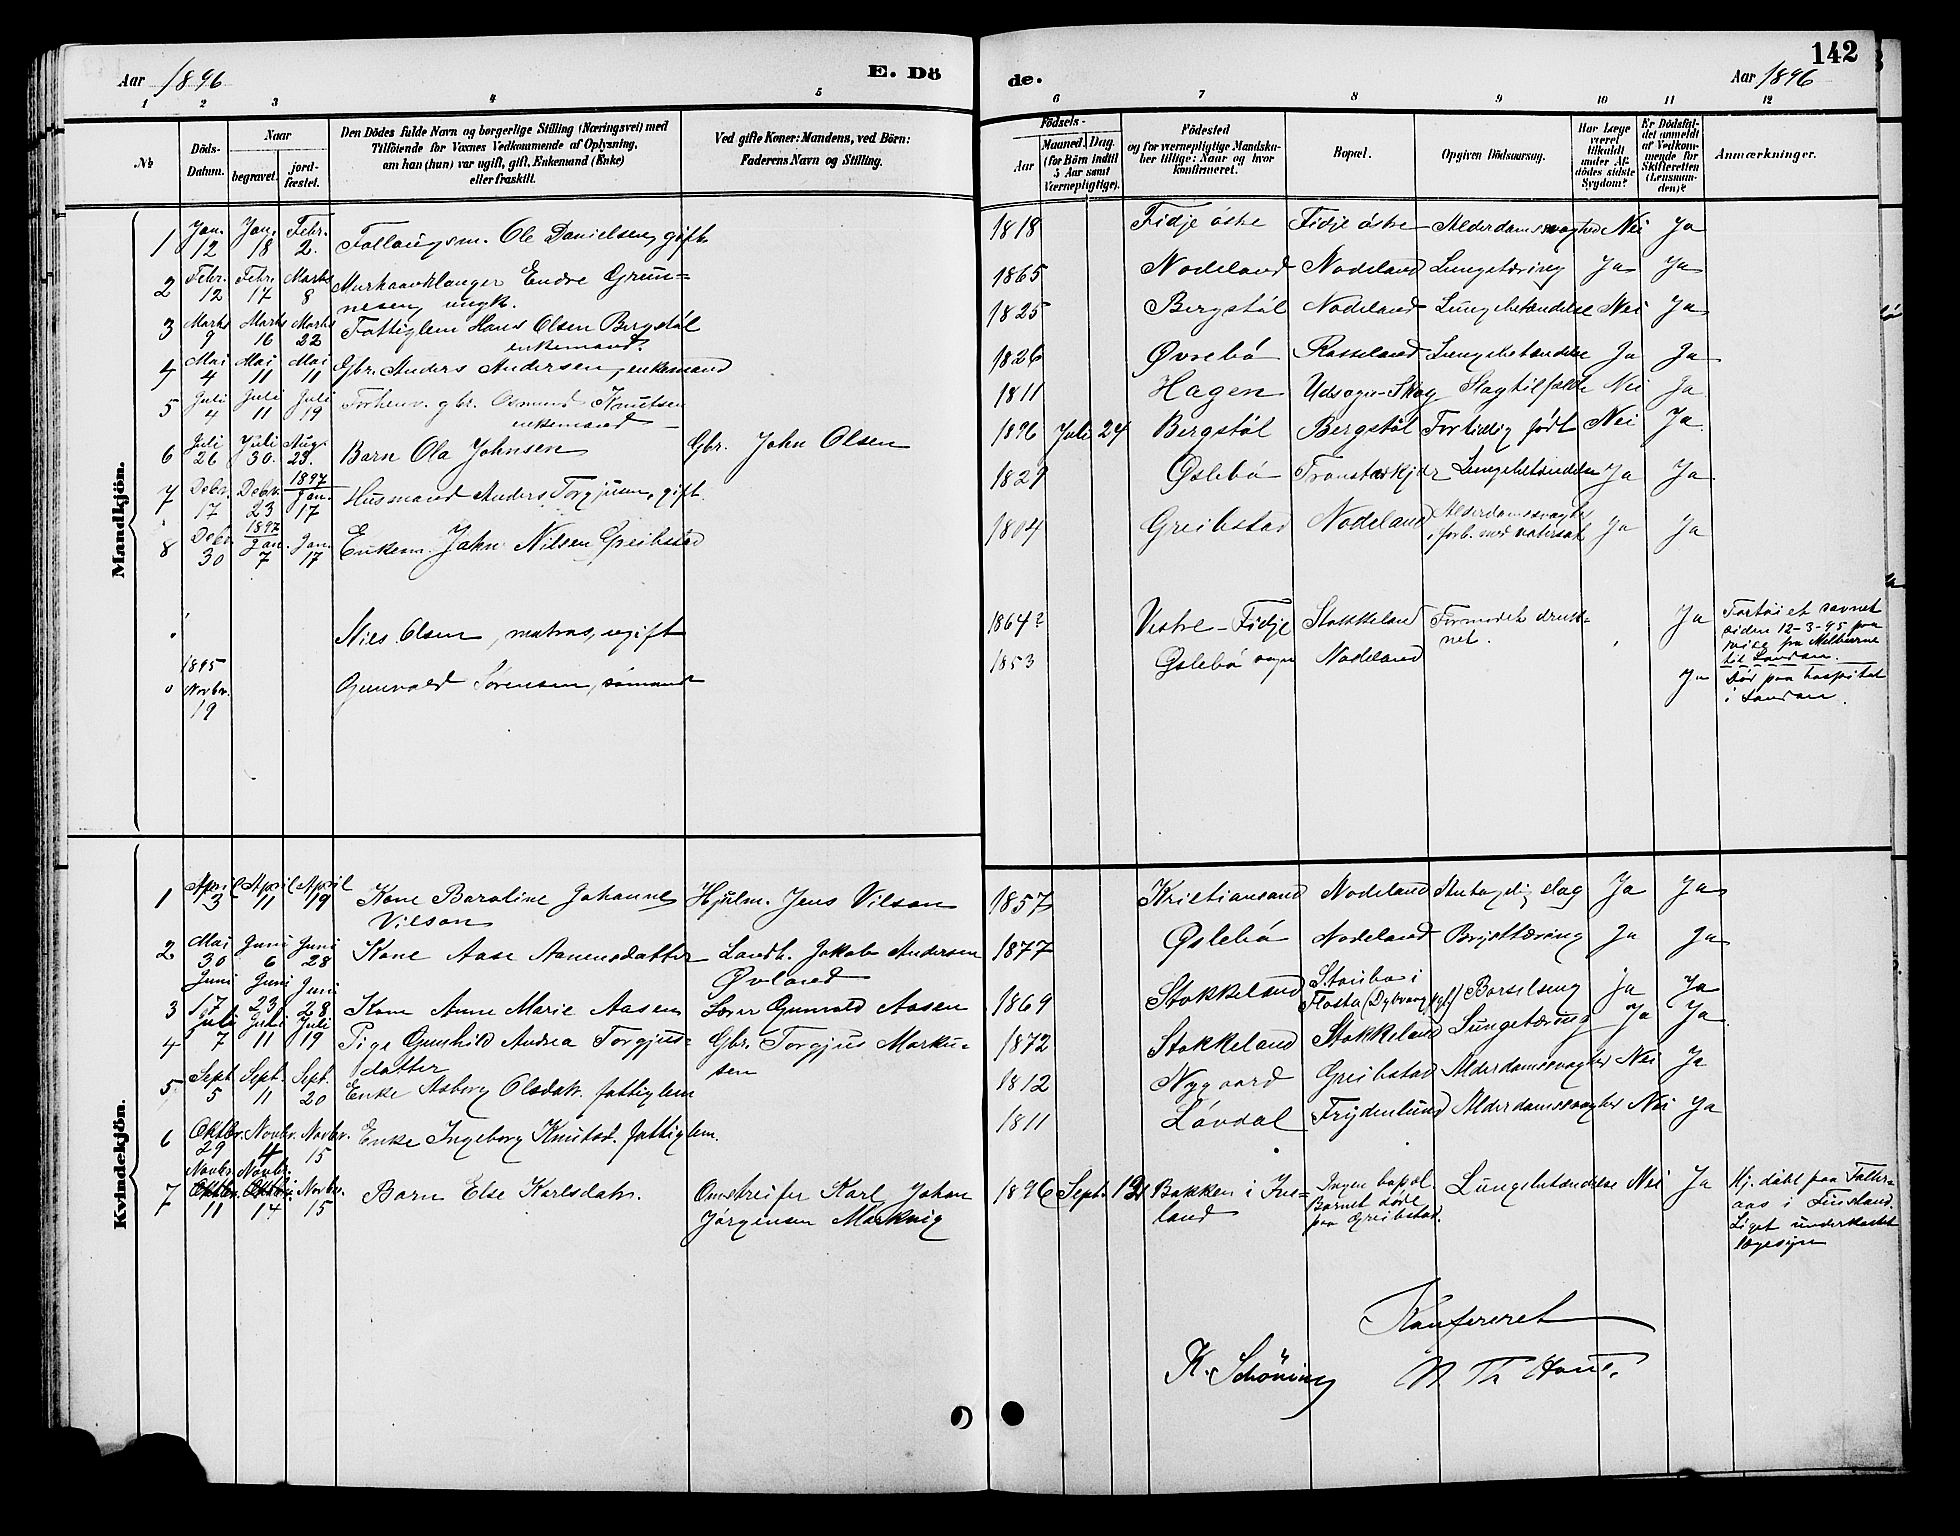 142
Aar 1896
E. Dö
de.
Aar 1896
1 2 3 4 5 6 7 8 9 10 11 12
No
Döds-Datum.
Naar
begravet.
jord-fæstet.
Den Dödes fulde Navn og borgerlige Stilling (Næringsvei) med
Tilföiende for Voxnes Vedkommende af Oplysning,
om han (hun) var ugift, gift, Enkemand (Enke)
eller fraskilt.
Ved gifte Koner: Mandens, ved Börn:
Faderens Navn og Stilling.
Födsels-
Aar
Maaned. Dag.
(for Börn indtil
5 Aar samt
Værnepligtige).
Födested
og for værnepligtige Mandska-
ber tillige: Naar og hvor
konfirmeret.
Bopæl.
Opgiven Dödsaarsag.
Har Læge
været
tilkaldt
under Af-
dödes sidste
Sygdom?
Er Dödsfal-
det anmeldt
af Vedkom-
mende for
Skifteretten
(Lensman-
den)?
Anmærkninger.
Mandkjön.
1 Jan. 12 Jan. 18 Febr. 2. Ole Danielsen, gift 1818 Fidje östre Fidje östre Alderdomssvaghed Nei Ja
2 Febr. 12 Febr. 17 Marts 8 Endre Grun-
nesen, ungk. 1865 Nodeland Nodeland Lungetæring Ja Ja
3 Marts 9 Marts 16 Marts 22 Fattiglem Hans Olsen Bergstöl
enkemand. 1825 Bergstöl Nodeland Lungebetændelse Nei Ja
4 Mai 4 Mai 11 Mai 11 Gbr. Anders Andersen, enkemand 1826 Øvrebö Rosseland Lungebetændelse Ja Ja
5 Juli 4 Juli 11 Juli 19 Forhenv. gbr. Osmund Knutsen
enkemand 1811 Hagen Slagtilfælde Nei Ja
6 Juli 26 Juli 30. Aug. 23. Barn Ola Johnsen Gbr. John Olsen 1896 Juli 24 Bergstöl Bergstöl For tidlig født Nei Ja
7 Debr. 17 Debr. 23 1897 Jan. 17 Husmand Anders Torgjusen, gift. 1829 Øslebö Lungebetændelse Ja Ja
8 Debr. 30 1897 Jan. 7 Jan. 17 Enkem. John Nilsen Greibstad 1804 Greibstad Nodeland Alderdomssvaghed
i forb. med Ja Ja
Nils Olsen, matros, ugift 1864? Vestre-Fidje Stokkeland Formodet druk-
net. Ja Fartöiet savnet
siden 12-3-95 paa
reise fra Melburne
til London.
1895 Novbr. 19 Gunvald Sørensen, sømand 1853 Øslebö sogn Nodeland Ja Død paa hospital
i London.
Kvindekjön.
1 April 3 April 11 April 19 Kone Johanne
Vilson Jens Vilson 1857 Kristiansand Nodeland slag Ja Ja
2 Mai 30 Juni 6 Juni 28 Kone Aase Aanensdatter Landh. Jakob Andersen
Øvland 1877 Øslebö Nodeland Brysttæring Ja Ja
3 Juni 17 Juni 23 Juni 28 Kone Anne Marie Aasen Lærer Gunvald Aasen 1869 Stokkeland Flosta (Dybvaag pgl.) Barselseng Ja Ja
4 Juli 7 Juli 11 Juli 19 Pige Gunhild Andrea Torgjus-
datter Gbr. Torgjus Marku-
sen 1872 Stokkeland Stokkeland Lungetæring Ja Ja
5 Sept 5 Sept. 11 Sept. 20 Enke Aaborg Olsdatr. fattiglem 1812 Nygaard Greibstad Alderdomssvaghed Nei Ja
6 Oktbr. 29 Novbr. 4 Novbr. 15 Enke Ingeborg Knutsd. fattiglem. 1811 Løvdal Frydenlund Alderdomssvaghed Nei Ja
7 Novbr. 11 Novbr. 14 Novbr. 15 Barn Else Karlsdatr. Omstreifer Karl Johan
Jörgensen 1896 Sept. Bakken i Ive-
land Ingen bopæl.
Barnet døde
paa Greibstad. Lungebetændelse Nei Ja Hj. døbt paa
i Finsland.
Liget underkastet
lægesyn
Konfereret
K. Schöning